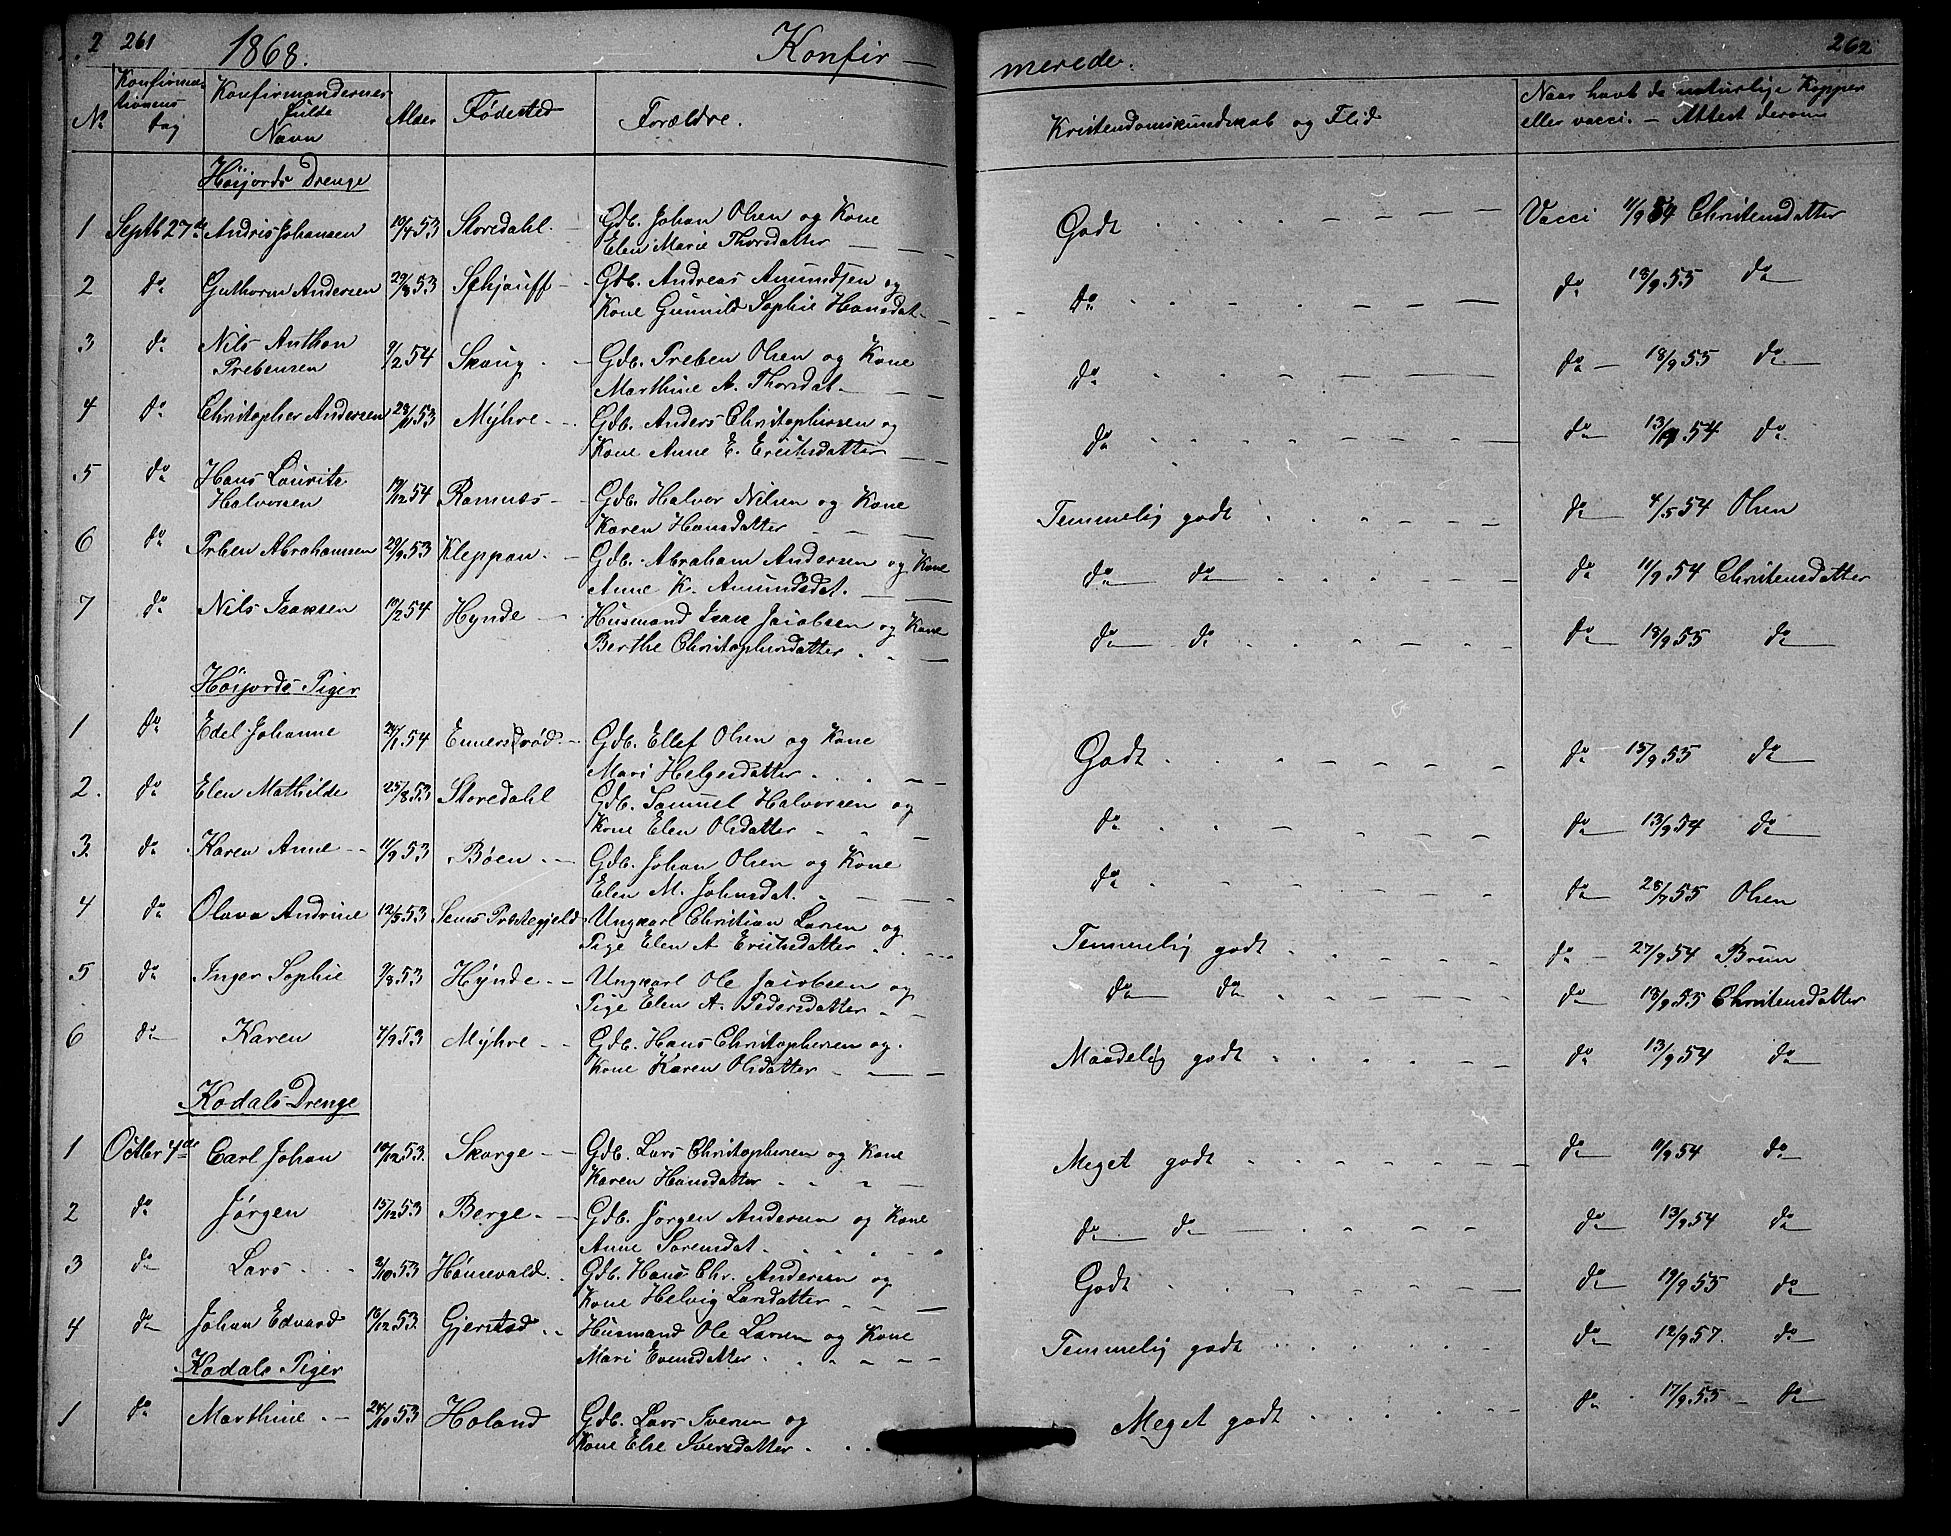 2 261 1868. Konfir- merede. 262
No Konfirma-tionens dag Konfirmandernes fulde Navn Alder Fødested Forældre. Kristendomskundskab og Flid Naar havt de naturlige Kopper eller vacci. - Attest derom
Høijords Drenge
1 Septb 27de Andris Johansen 19/4 53 Storedahl. Gdb. Johan Olsen og Kone Elen Marie Thorsdatter Godt Vacci 11/9 54 Christensdatter
2 do Guthorm Andersen 29/8 53 Schjauff Gdb. Andreas Amundsen og Kone Gunnild Sophie Hansdat. do do 18/9 55 do
3 do Nils Anthon Prebensen 9/2 54 Skaug Gdb. Preben Olsen og Kone Marthine A. Thorsdat. do do 18/9 55 do
4 do Christopher Andersen 23/11 53 Mÿhre Gdb. Anders Christophersen og Kone Anne E. Erichsdatter do do 13/9 54 do
5 do Hans Lauritz Halvorsen 54 Ramnæs Gdb. Halvor Nilsen og Kone Karen Hansdatter Temmelig godt do 4/5 54 Olsen
6 do Prben Abrahamsen 29/9 53 Kleppan. Gdb. Abraham Andersen og Kone Anne K. Amundsdat. do do do 11/9 54 Christensdatter
7 do Nils Isaksen 19/2 54 Hynde Husmand Isak Jacobsen og Kone Berthe Christophersdatter do do do 18/9 55 do
Høijords Piger
1 do Edel Johanne 24/1 54 Ennersdrød. Gdb. Ellef Olsen og Kone Mari Helgesdatter Godt do 15/9 55 do
2. do Elen Mathilde 25/8 53 Storedahl Gdb. Samuel Halvorsen og Kone Elen Olsdatter do do 13/9 54 do
3. do Karen Anne 11/9 53 Bøen Gdb. Johan Olsen og Kone Elen M. Johnsdat. do do 28/7 55 Olsen
4 do Olava Andrine 12/5 53 Sems Præstegjeld Ungkarl Christian Larsen og Pige Elen A Erichsdatter Temmelig godt do 27/9 54 Brun
5 do Inger Sophie 9/8 53 Hÿnde Ungkarl Ole Jacobsen og Pige Elen A. Pedersdatter do do do 13/9 55 Christensdatter
6 do Karen 4/9 53 Mÿhre Gdb. Hans Christophersen og. Kone Karen Olsdatter Maadelig godt do 13/9 54 do
Kodals Drenge
1 Octbr 4de Carl Johan 10/12 53. Skorge Gdb. Lars Christophersen og Kone Karen Hansdatter Meget godt do 11/9 54 do
2 do Jørgen 15/12 53 Berge Gdb. Jørgen Andersen og Kone Anne Sørensdat. do do do 13/9 54 do
3 do Lars 2/10 53 Hønevald. Gdb. Hans Chr. Andersen og Kone Helvig Larsdatter Godt do 19/9 55 do
4 do Johan Edvard 16/12 53. Gjerstad Husmand Ole Larsen og Kone Mari Evensdatter Temmelig godt do 12/9 57. do
Kodals Piger
1 do Marthine 24/10 53 Holand Gdb. Lars Iversen og Kone Else Iversdatter Meget godt do 17/9 55 do